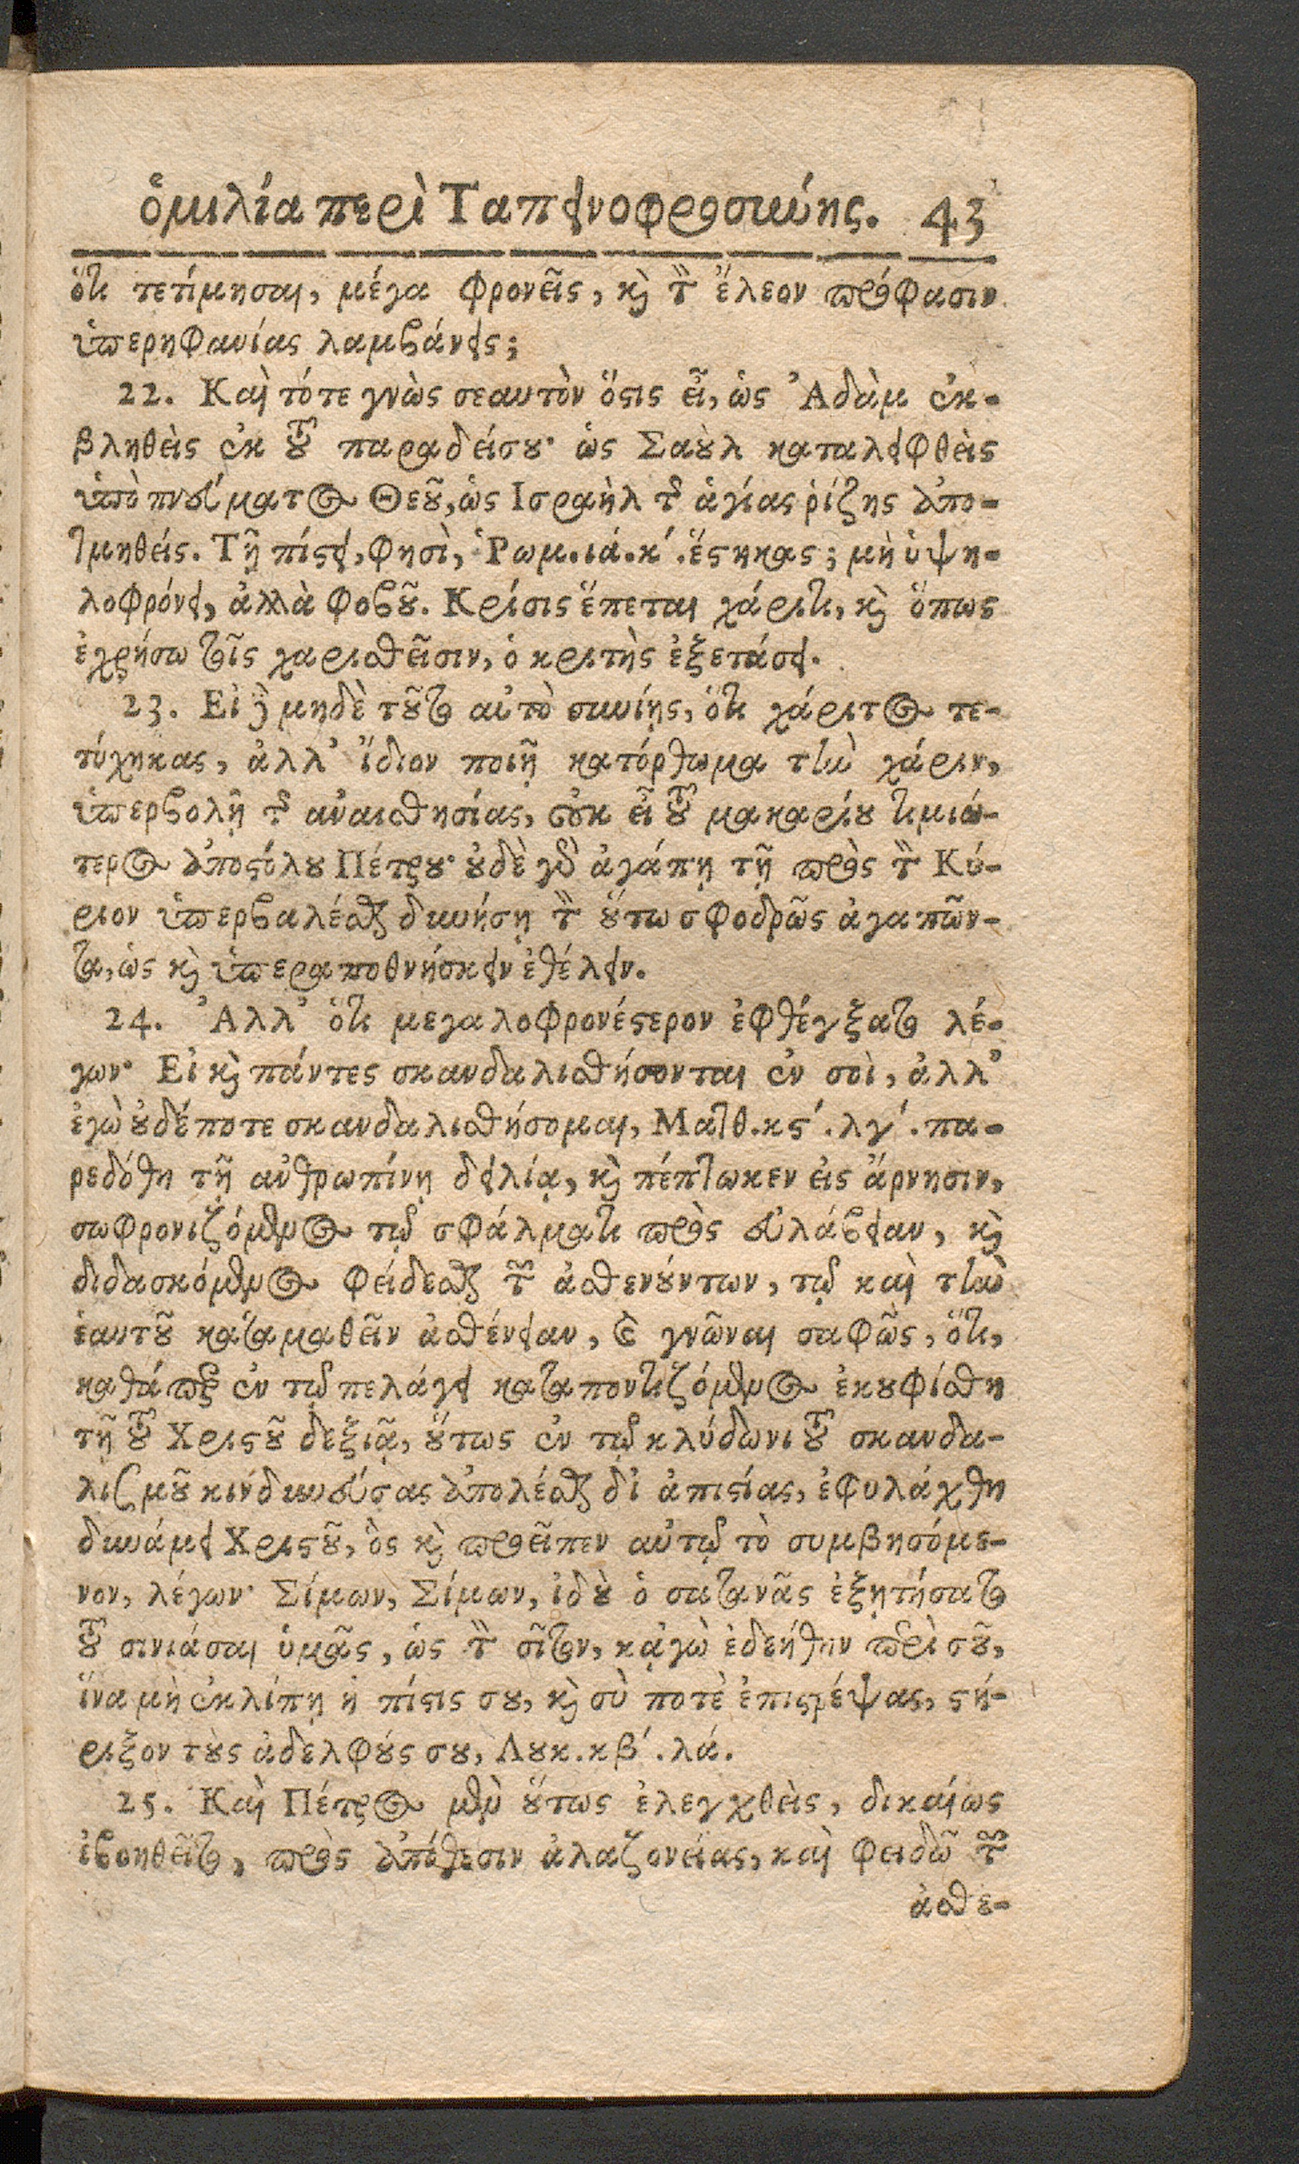 ὁμιλία περὶ Ταπεινοφροσύνης. 43
ὅτι τετίμησαι, μέγα φρονεῖς, καὶ τὸν ἔλεον πρόφασιν
ὑπερηφανίας λαμβάνεις;
22. Καὶ τότε γνῶς σεαυτὸν ὅστις εἶ, ὡς Ἀδὰμ ἐκ-
βληθεὶς ἐκ τοῦ παραδείσου· ὡς Σαοὺλ καταλειφθεὶς
ὑπὸ πνεύματος Θεοῦ, ὡς Ισραὴλ τῆς ἁγίας ῥίζης ἀπο-
τμηθείς. Τῇ πίστει, φησὶ, Ῥωμ. ιά. κ΄. ἕστηκας; μὴ ὑψη-
λοφρόνει, ἀλλὰ φοβοῦ. Κρίσις ἕπεται χάριτι, καὶ ὅπως
ἐχρήσω τοῖς χαρισθεῖσιν, ὁ κριτὴς ἐξετάσει.
23. Εἰ δὲ μηδὲ τοῦτο αὐτὸ συνίῃς, ὅτι χάριτος τε-
τύχηκας, ἀλλ' ἴδιον ποιῇ κατόρθωμα τὴν χάριν,
ὑπερβολῇ τῆς ἀναισθησίας, οὐκ εἶ τοῦ μακαρίου τιμιώ-
τερος ἀποστόλου Πέτρου· οὐδὲ γὰρ ἀγάπῃ τῇ πρὸς τὸν Κύ-
ριον ὑπερβαλέσθαι δυνήσῃ τὸν οὕτω σφοδρῶς ἀγαπῶν-
τα, ὡς καὶ ὑπεραποθνήσκειν ἐθέλειν.
24. Ἀλλ' ὅτι μεγαλοφρονέστερον ἐφθέγξατο λέ-
γων· Εἰ καὶ πάντες σκανδαλισθήσονται ἐν σοὶ, ἀλλ'
ἐγὼ οὐδέποτε σκανδαλισθήσομαι, Ματθ. κϛ΄. λγ΄. πα-
ρεδόθη τῇ ἀνθρωπίνῃ δειλίᾳ, καὶ πέπτωκεν εἰς ἄρνησιν,
σωφρονιζόμενος τῷ σφάλματι πρὸς εὐλάβειαν, καὶ
διδασκόμενος φείδεσθαι τῶν ἀσθενούντων, τῷ καὶ τὴν
ἑαυτοῦ καταμαθεῖν ἀσθένειαν, καὶ γνῶναι σαφῶς, ὅτι,
καθάπερ ἐν τῷ πελάγει καταποντιζόμενος ἐκουφίσθη
τῇ τοῦ Χριστοῦ δεξιᾷ, οὕτως ἐν τῷ κλύδωνι τοῦ σκανδα-
λιζμοῦ κινδυνεύσας ἀπολέσθαι δι' ἀπιστίας, ἐφυλάχθη
δυνάμει Χριστοῦ, ὃς καὶ προεῖπεν αὐτῷ τὸ συμβησόμε-
νον, λέγων· Σίμων, Σίμων, ἰδοὺ ὁ σατανᾶς ἐξῃτήσατο
τοῦ σινιάσαι ὑμᾶς, ὡς τὸν σῖτον, κᾀγὼ ἐδεήθην περὶ σοῦ,
ἵνα μὴ ἐκλίπῃ ἡ πίστις σου, καὶ σὺ ποτὲ ἐπιστρέψας, στή-
ριξον τοὺς ἀδελφούς σου, Λουκ. κβ΄. λά.
25. Καὶ Πέτρος μὲν οὕτως ἐλεγχθεὶς, δικαίως
ἐβοηθεῖτο, πρὸς ἀπόθεσιν ἀλαζονείας, καὶ φειδῶ τῶν
ἀσθε-